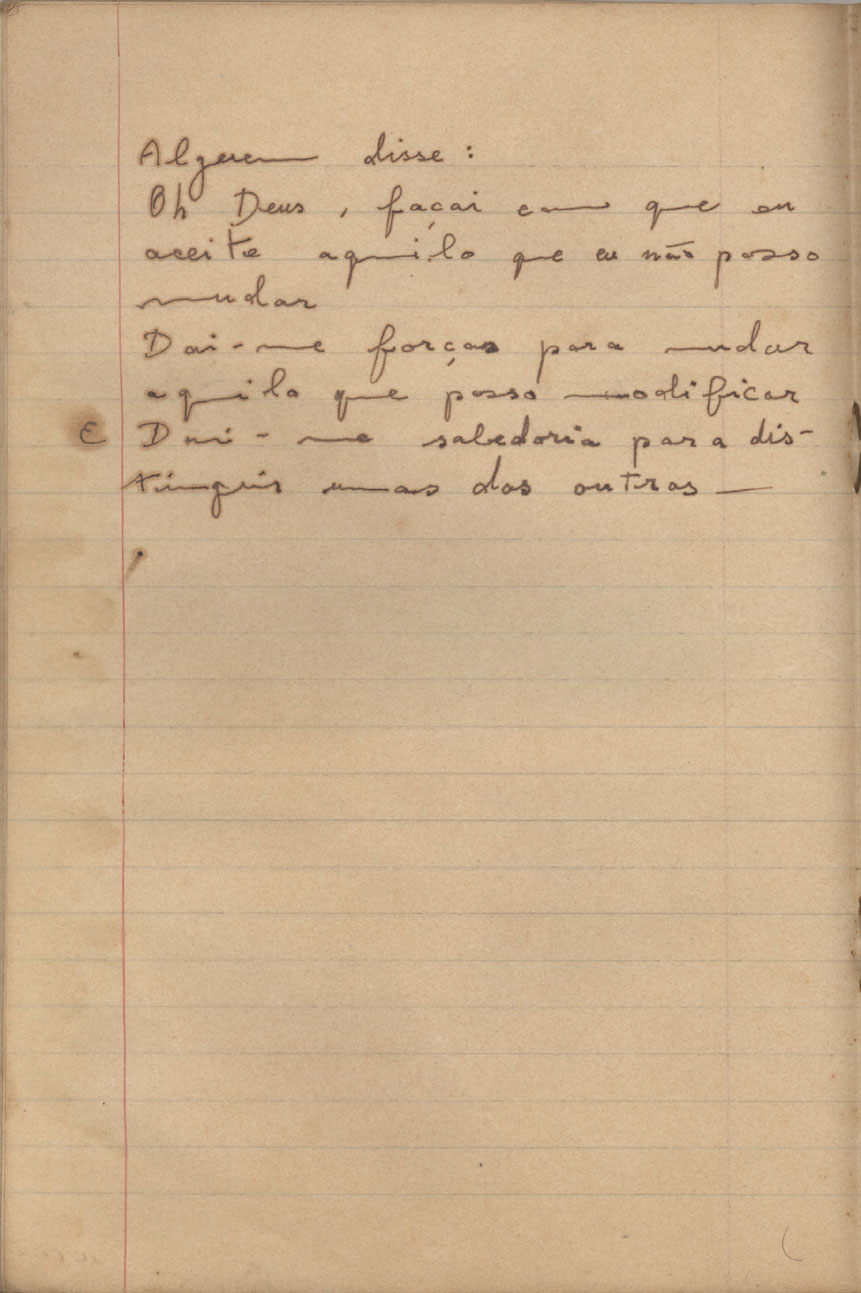 Alguem disse:
Oh Deus, façai com que eu
aceite aquilo que eu não posso
mudar
Dai-me forças para mudar
aquilo que posso modificar
E Dai-me sabedoria para dis-
tinguir umas das outras —